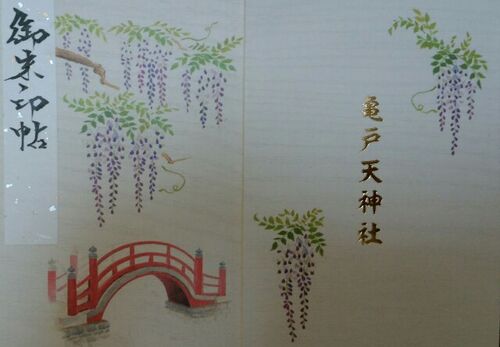 御朱印帖
亀戸天神社